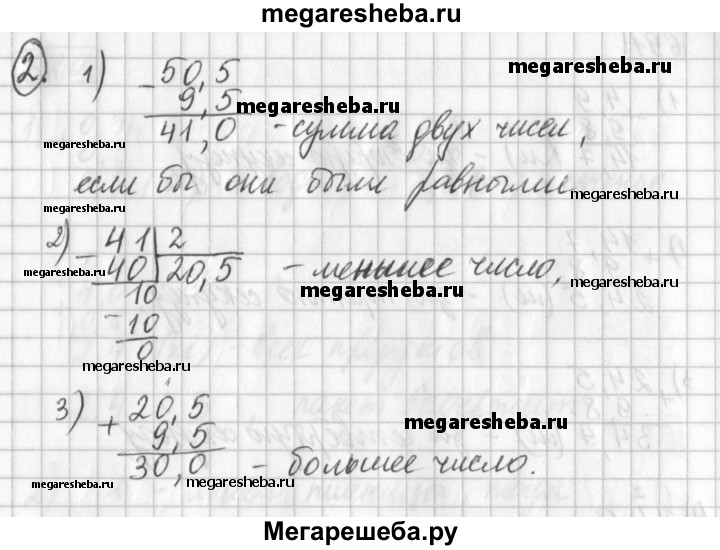 megaresheba.ru
2. 1) - 50,5 megaresheba.ru
9,5 megaresheba.ru
megaresheba.ru 41,0 - сумма двух чисел,
если бы они были равными megaresheba.ru
megaresheba.ru
2) - 41 | 2
megaresheba.ru 40 | 20,5 - меньшее число, megaresheba.ru
10 megaresheba.ru
- 10
0
megaresheba.ru
3) + 20,5
9,5 megaresheba.ru
30,0 - большее число.
megaresheba.ru megaresheba.ru
Мегарешеба.ру